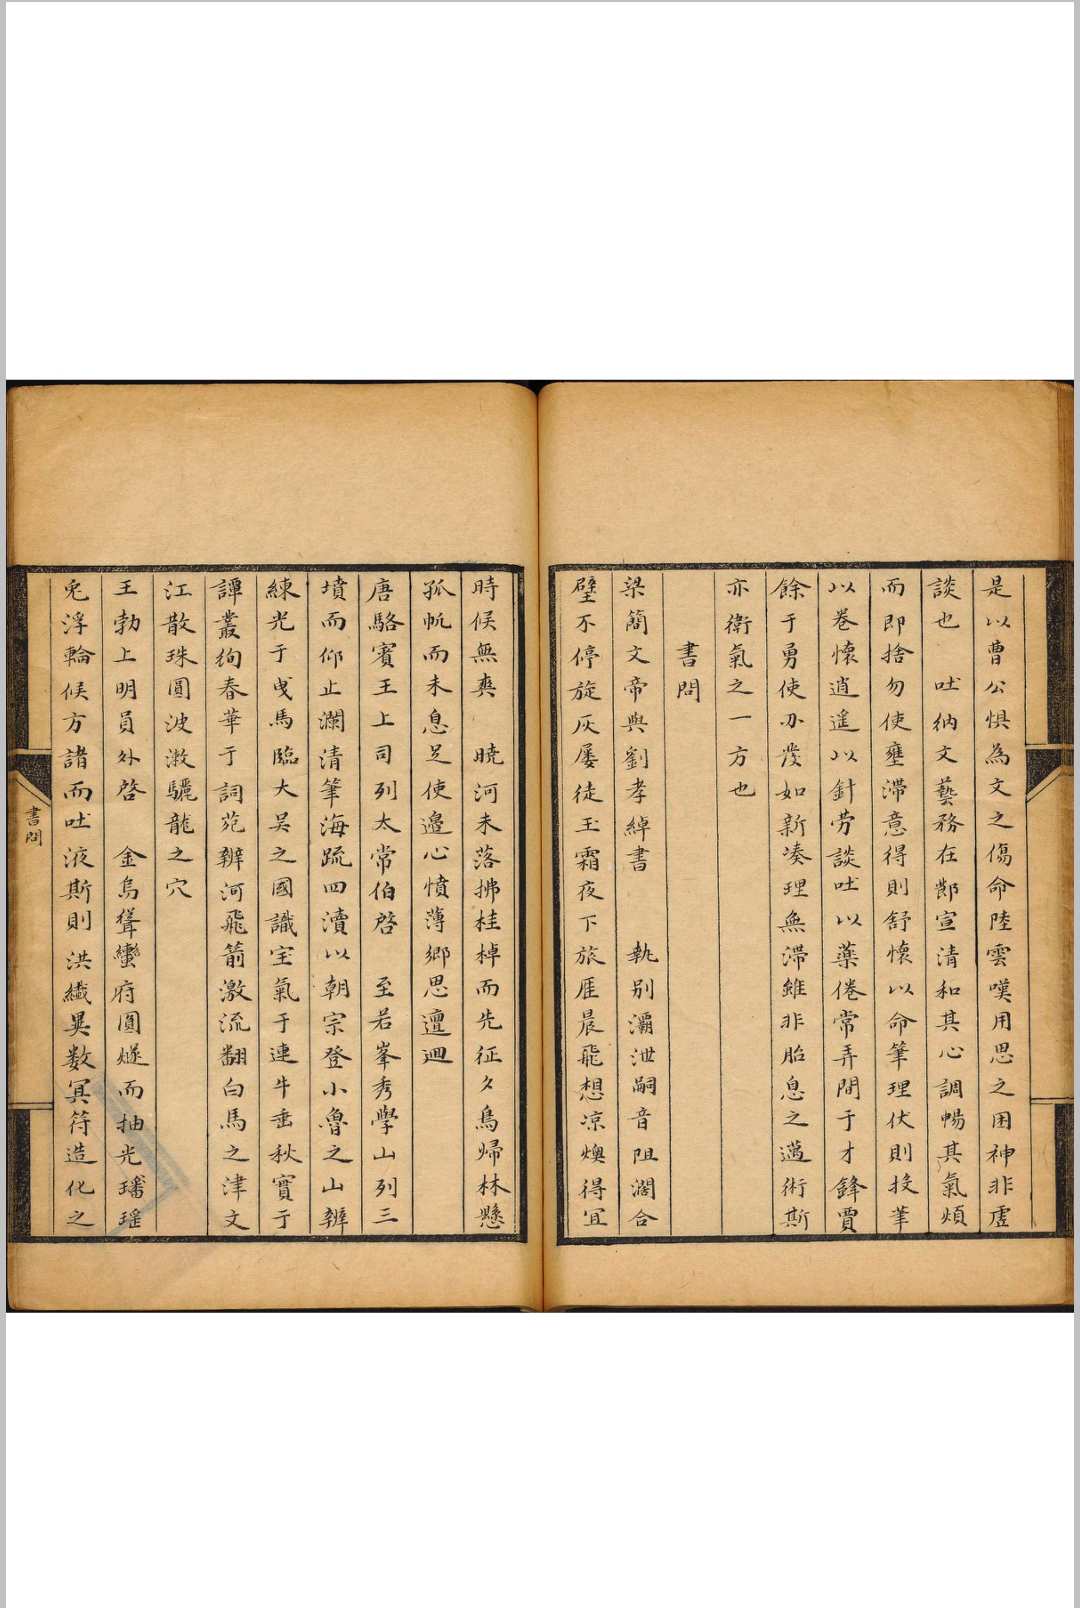 是以曹公惧為文之傷命陸雲嘆用思之困神非虛
談也　吐納文藝務在節宣清和其心調暢其氣煩
而即捨勿使壅滯意得則舒懷以命筆理伏則投筆
以卷懷逍遥以針劳談吐以藥倦常弄閒于才鋒賈
餘于勇使刃發如新凑理無滯雖非胎息之邁術斯
亦衛氣之一方也
書問
梁簡文帝與劉孝綽書　執别灞泄嗣音阻濶合
璧不停旋灰屢徙玉霜夜下旅雁晨飛想凉燠得宜
時候無爽　曉河未落拂桂棹而先征夕鳥歸林懸
孤帆而未息足使邉心憤薄鄉思邅迴
唐駱賓王上司列太常伯啓　至若峯秀學山列三
墳而仰止瀾清筆海疏四瀆以朝宗登小魯之山辨
練光于曳馬臨大吴之國識宝氣于連牛垂秋實于
譚叢絢春華于詞苑辨河飛箭激流翻白馬之津文
江散珠圓波漱驪龍之穴
王勃上明員外啓　金烏聳轡府圓燧而抽光瑶
兎浮輪候方諸而吐液斯則洪纎異数冥符造化之
書問